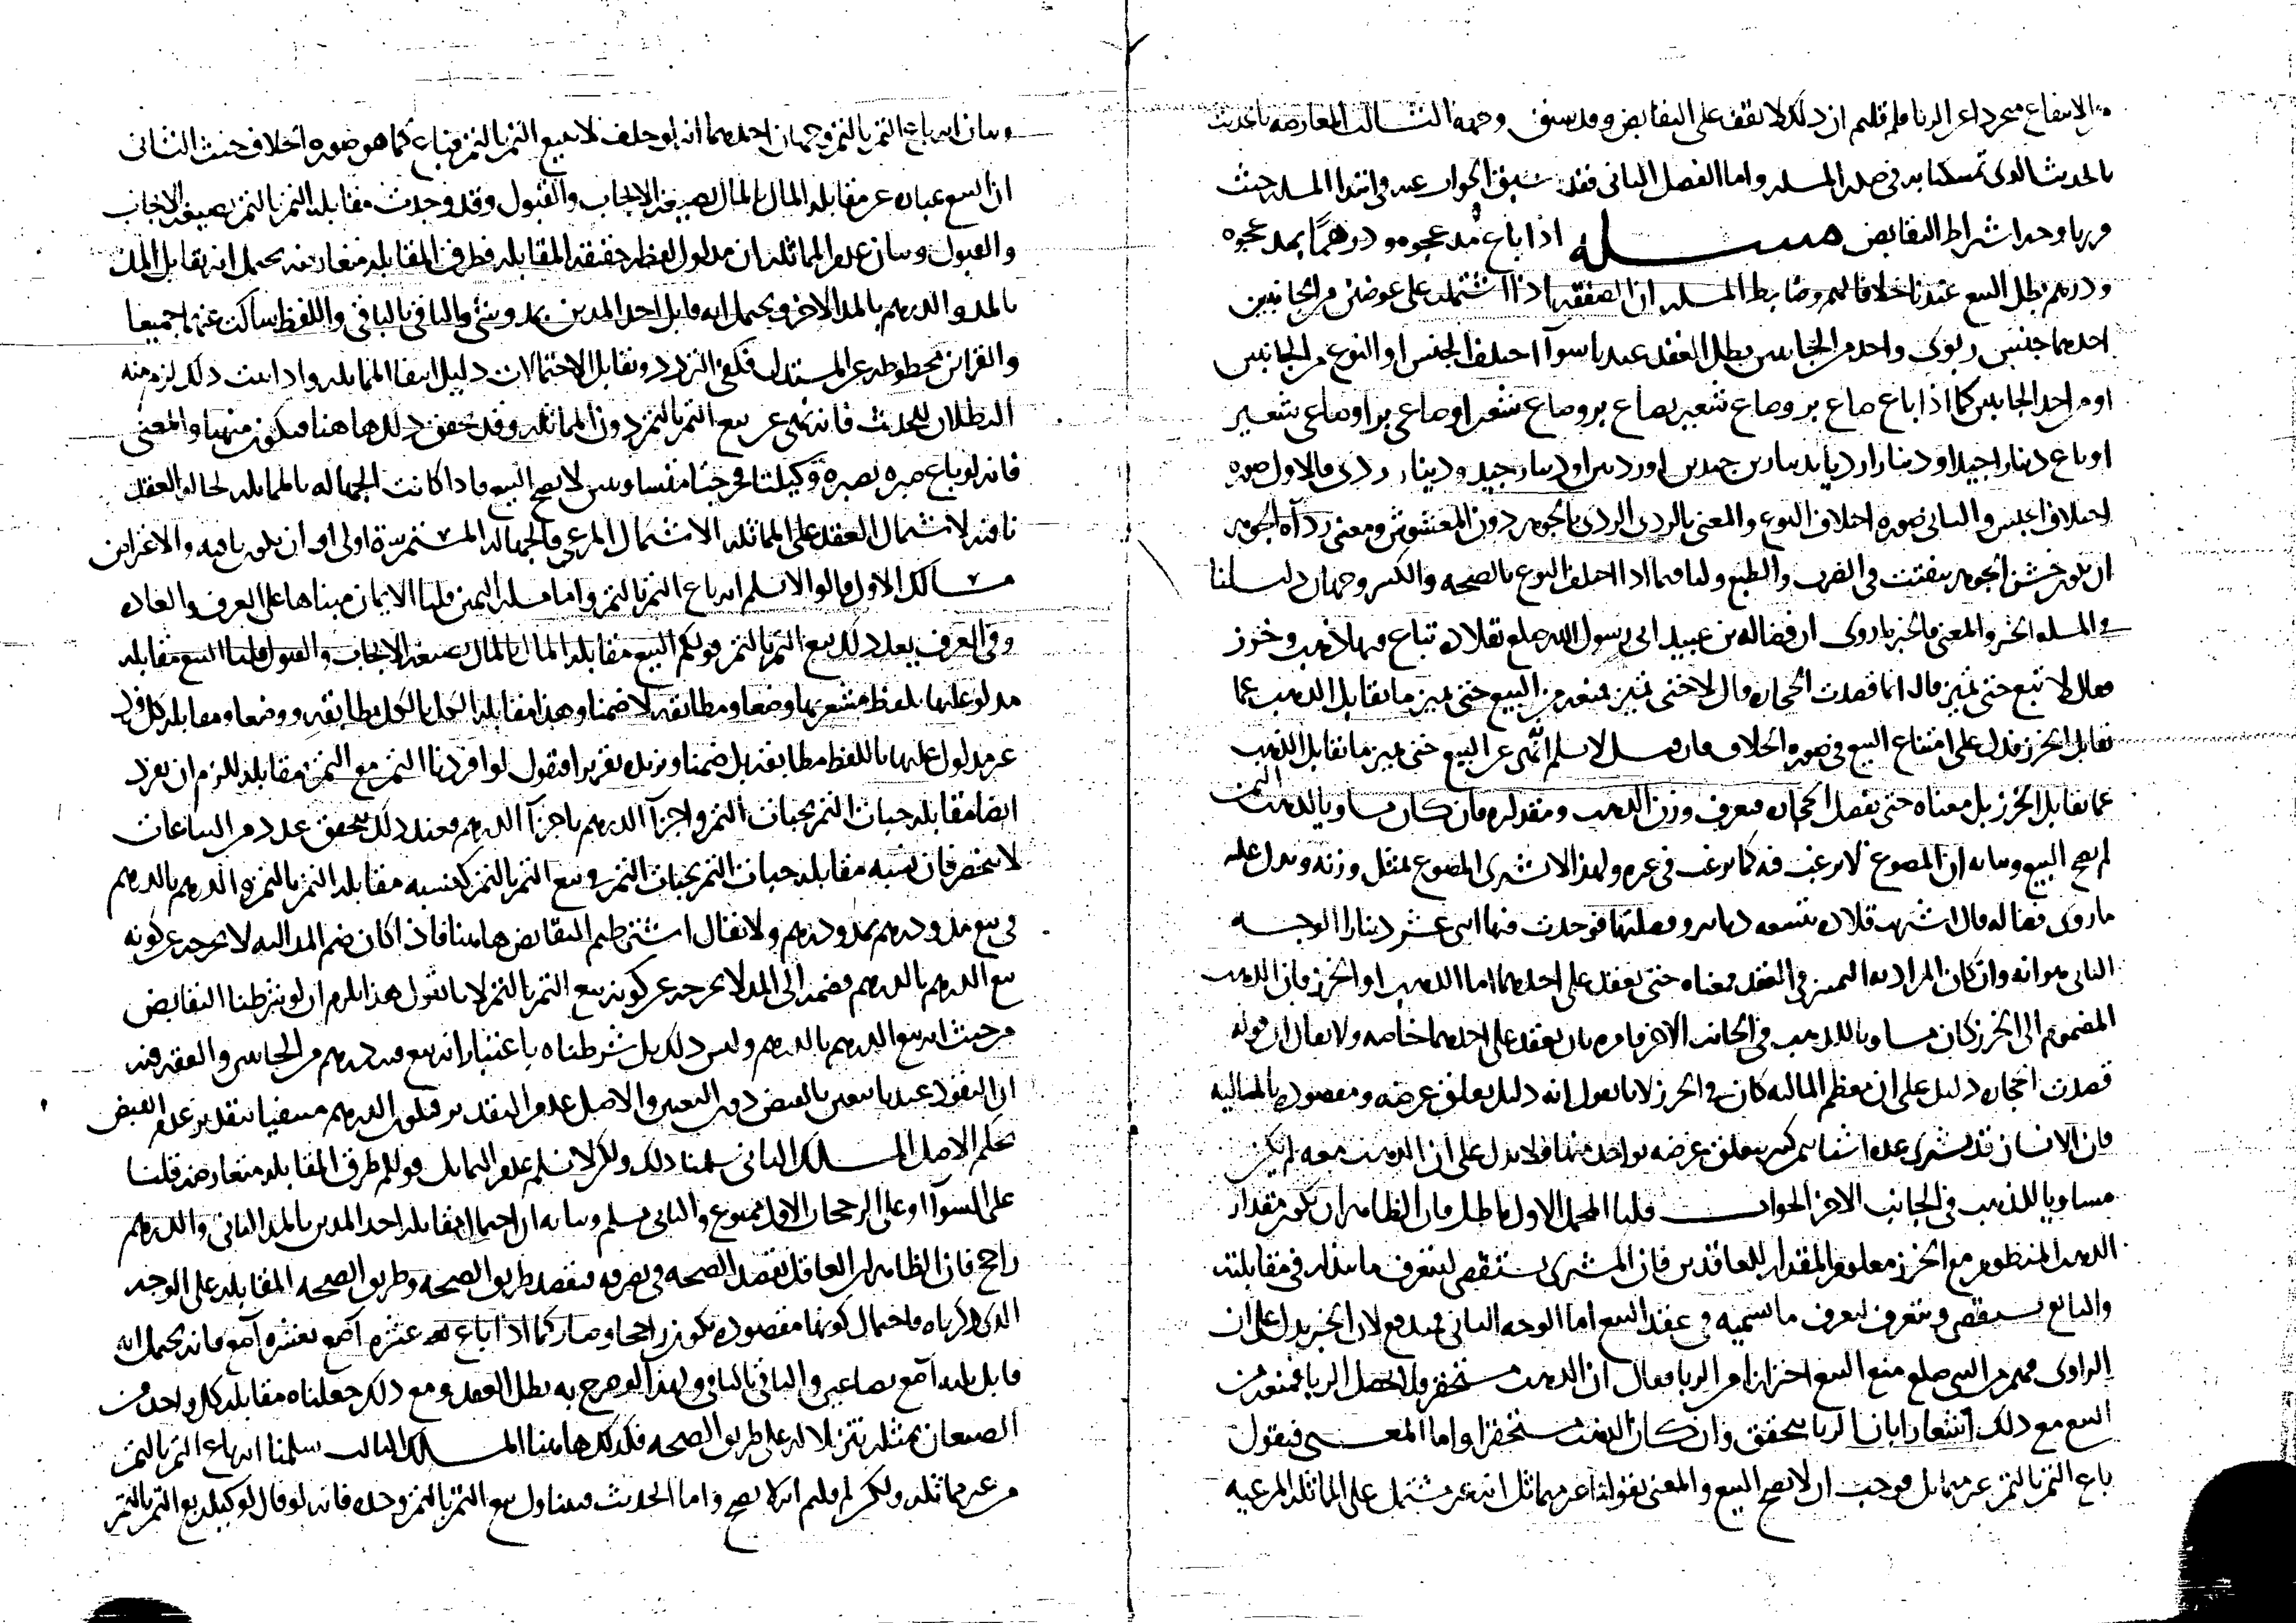 الانتفاع مجردا عن الربا فلم قلتم ان ذلك لا يقف على التقابض وقد سبق وجهه الثالث المعارضه بالحديث
بالحديث الذى تمسكنا به فى صدر المسله واما الفصل الثانى فقد سبق الجواب عنه فى ابتدا المسله حيث
قررنا وجه اشتراط التقابض مسله اذا باع مد عجوه ودرهما بمد عجوه
ودرهم بطل البيع عندنا خلافا لهم وضابط المسله ان الصفقه اذا اشتملت على عوضين من الجانبين
احدهما جنس ربوى واحد من الجانبين بطل العقد عندنا سوآ اختلف الجنس او النوع من الجانبين
او من احد الجانبين كما اذا باع صاع بر وصاع شعير بصاع بر وصاع شعير او صاعى بر او صاعى شعير
او باع دينارا جيدا ودينارا رديا بدينارين جيدين او رديين او دينار جيد ودينار ردى فالاول صوره
اختلاف الجنس والثانى صوره اختلاف النوع والمعنى بالردى الردى بالجوهر دون المغشوش ومعنى ردآه الجوهر
ان يكون خشن الجوهر يتفتت فى الضرب والطبع ولنا فيما اذا اختلف النوع بالصحه والكسر وجهان دليلنا
فى المسله الخبر والمعنى فالخبر ما روى ان فضاله بن عبيد اتى رسول الله صلع بقلاده تباع فيها ذهب وخرز
فقال لا تبع حتى تميز قال انما قصدت الحجاره قال لا حتى تميز منعه من البيع حتى يميز ما يقابل الذهب عما
يقابل الخرز فدل على امتناع البيع فى صوره الخلاف فان قيل لا نسلم انه نهى عن البيع حتى يميز ما يقابل الذهب
عما يقابل الخرز بل معناه حتى يفصل الحجاره فيعرف وزن الذهب ومقداره فان كان مساويا للذهب الثمن
لم يصح البيع وبيانه ان المصوغ لا يرغب فيه كما يرغب فى غيره ولهذا لا يشترى المصوغ بمثل وزنه ويدل عليه
ما روى فضاله قال اشتريت قلاده بتسعه دنانير وفصلتها فوجدت فيها اثنى عشر دينارا الوجه
الثانى هو انه وان كان المراد به التمييز فى العقد فمعناه حتى يعقد على احدهما اما الذهب او الخرز فان الذهب
المضموم الى الخرز كان مساويا للذهب فى الجانب الاخر فامره بان يعقد على احدهما خاصه ولا يقال ان قوله
قصدت الحجاره دليل على ان معظم الماليه كان فى الخرز لانا نقول انه دليل تعلق غرضه ومقصوده بالماليه
فان الانسان قد يشترى عده اشيا ثم يتعلق غرضه بواحد منها فلا يدل على ان الذهب معه لم يكن
مساويا للذهب فى الجانب الاخر الجواب قلنا المحمل الاول باطل فان الظاهر ان يكون مقدار
الذهب المنظوم مع الخرز معلوم المقدار للعاقدين فان المشترى يستقصى ليتعرف ما يبذله فى مقابلته
والبائع يستقصى ويتعرف ليعرف ما يسميه فى عقد البيع اما الوجه الثانى فيندفع لان الخبر يدل على ان
الراوى فهم من النبى صلع منع البيع احترازا من الربا فقال ان الذهب مستحقر فلا يحصل الربا فمنعه من
البيع مع ذلك اشعارا بان الربا يتحقق وان كان الذهب مستحقرا واما المعنى فنقول
باع التمر بالتمر غير متماثل فوجب ان لا يصح البيع والمعنى بقولنا غير متماثل انه غير مشتمل على المماثله المرعيه
وبيان انه باع التمر بالتمر وجهان احدهما انه لو حلف لا يبيع التمر بالتمر فباع كما هو صوره الخلاف حنث الثانى
ان البيع عباره عن مقابله المال بالمال بصيغه الايجاب والقبول وقد وجدت مقابله التمر بالتمر بصيغه الايجاب
والقبول وبيان عدم المماثله ان مدلول لفظه حقيقه المقابله فطرق المقابله متعارضه يحتمل انه يقابل المد
بالمد والدرهم بالمد الاخر ويحتمل انه قابل احد المدين بمد وشى والباقى بالباقى واللفظ ساكت عنها جميعا
والقراين محطوطه عن المستدل فكفى التردد وتقابل الاحتمالات دليل انتفا المماثله واذا ثبت ذلك لزم منه
البطلان للحديث فانه نهى عن بيع التمر بالتمر دون المماثله وقد تحقق ذلك هاهنا فيكون منهيا والمعنى
فانه لو باع صبره بصبره وكيلتا فخرجتا متساويتين لا يصح البيع فاذا كانت الجهاله بالمماثله لحاله العقد
نافيه لاشتمال العقد على المماثله الاشتمال المرعى فالجهاله المستمره اولى ان تكون نافيه والاعتراض
مسالك الاول قالوا لا نسلم انه باع التمر بالتمر واما مسله اليمين قلنا الايمان مبناها على العرف والعاده
وفى العرف يعد ذلك بيع التمر بالتمر قولكم البيع مقابله المال بالمال بصيغه الايجاب والقبول قلنا البيع مقابله
مدلول عليها بلفظ مشعر بها وضعا ومطابقه لا ضمنا وهذا مقابله الكل بالكل مطابقه ووضعا ومقابله كل فرد
غير مدلول عليها باللفظ مطابقه بل ضمنا ونزيده تقريرا فنقول لو افردنا التمر مع التمر مقابله للزم ان نفرد
ايضا مقابله حبات التمر بحبات التمر واجزآ الدرهم باجزآ الدرهم فعند ذلك يتحقق عدد من البياعات
لا ينحصر فان نسبه مقابله حبات التمر بحبات التمر فى بيع التمر بالتمر كنسبه مقابله التمر بالتمر والدرهم بالدرهم
فى بيع مد ودرهم بمد ودرهم ولا يقال اشترطتم التقابض هاهنا فاذا كان ضم المد اليه لا يخرجه عن كونه
بيع الدرهم بالدرهم فضمه الى المد لا يخرجه عن كونه بيع التمر بالتمر لانا نقول هذا يلزم ان لو شرطنا التقابض
من حيث انه بيع الدرهم بالدرهم وليس ذلك بل شرطناه باعتبار انه بيع فيه درهم من الجانبين والفقه فيه
ان النقود عندنا تتعين بالقبض دون التعيين والاصل عدم النقد فيكون الدرهم منتفيا بتقدير عدم القبض
بحكم الاصل المسلك الثانى سلمنا ذلك ولكن لا نسلم عدم التماثل قولكم طرق المقابله متعارضه قلنا
على السوآ او على الرجحان الاول ممنوع والثانى مسلم وبيانه ان احتمال مقابله احد المدين بالمد الثانى والدرهم
راجح فان الظاهر ان العاقل يقصد الصحه فى تصرفه فيقصد طريق الصحه وطريق الصحه المقابله على الوجه
الذى ذكرناه فاحتمال كونها مقصوده يكون راجحا وصار كما اذا باع عشره آصع بعشره آصع فانه يحتمل انه
قابل ثلاثه آصع بصاعين والباقى بالباقى وبهذا لو صرح به بطل العقد ومع ذلك جعلناه مقابله كل واحد من
الصيعان بمثله تنزيلا له على طريق الصحه فكذلك هاهنا المسلك الثالث سلمنا انه باع التمر بالتمر
من غير مماثله ولكن لم قلتم انه لا يصح واما الحديث فيتناول بيع التمر بالتمر وحده فانه لو قال لوكيله بع التمر بالتمر